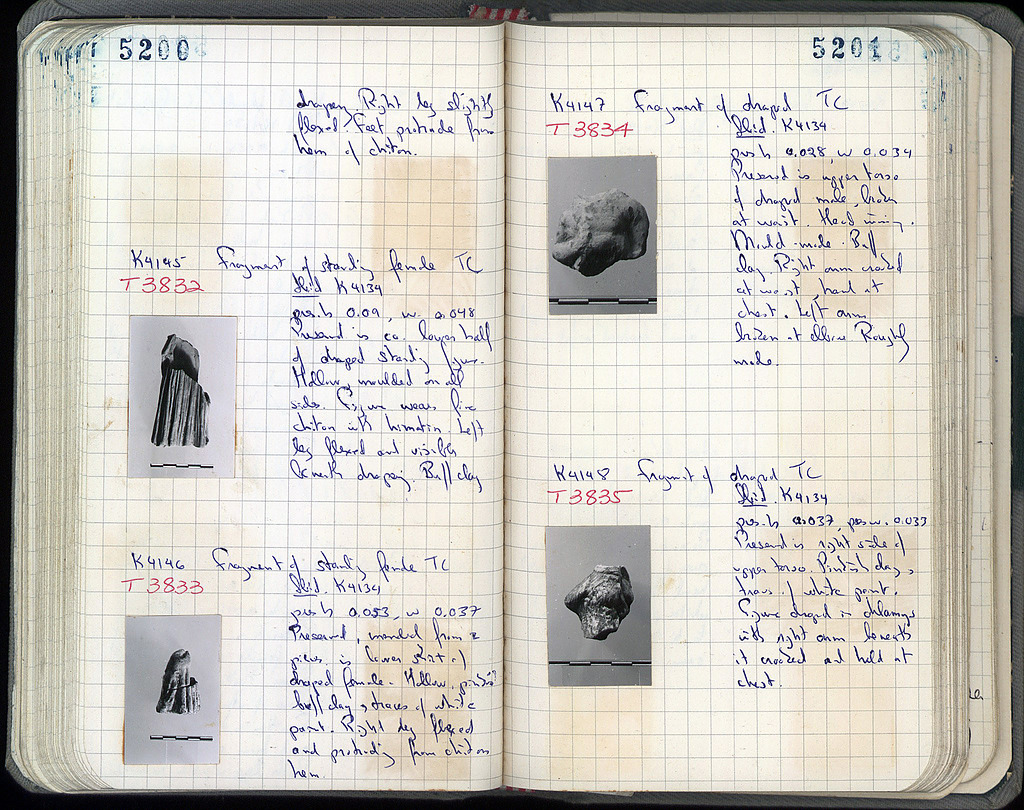 5200
drapery. Right leg slightly
flexed. Feet protrude from
hem of chiton.
K4145 Fragment of standing female TC
T3832
Ibid. K4134
pres. h 0.09, w. 0.048
Preserved is ca. lower half
of draped standing figure.
Hollow, moulded on all
sides. Figure wears fine
chiton with himation. Left
leg flexed and visible
beneath drapery. Buff clay
K4146 Fragment of standing female TC
T3833
Ibid. K4134
pres h 0.053, w 0.037
Preserved, mended from 2
pieces is lower skirt of
draped female. Hollow,
buff clay, traces of white
paint. Right leg flexed
and protruding from chiton
hem.
5201
K4147 Fragment of draped TC
T3834
Ibid. K4134
pres h 0.028, w 0.034
Preserved is upper torso
of draped male, broken
at waist. Head missing.
Mould-made. Buff
clay. Right arm crooked
at waist, hand at
chest. Left arm
broken at elbow. Roughly
made.
K4148 Fragment of draped TC
T3835
Ibid. K4134
pres. h 0.037, pres w. 0.033
Preserved is right side of
upper torso. Pinkish clay,
traces of white paint.
Figure draped in chlamys
with right arm beneath
it crooked and held at
chest.